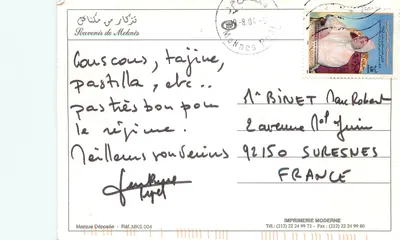 تذكار من مكناس
Souvenir de Meknès
Couscous, tajine,
pastilla, etc..
pas très bon pour
le régime.
Meilleurs souvenirs
Mr BINET Marc Robert
2 avenue 1er Juin
92150 SURESNES
FRANCE
Marque Déposée - Réf. MKS 004
IMPRIMERIE MODERNE
Tél. : (212) 22 24 99 73 - Fax : (212) 22 24 99 80